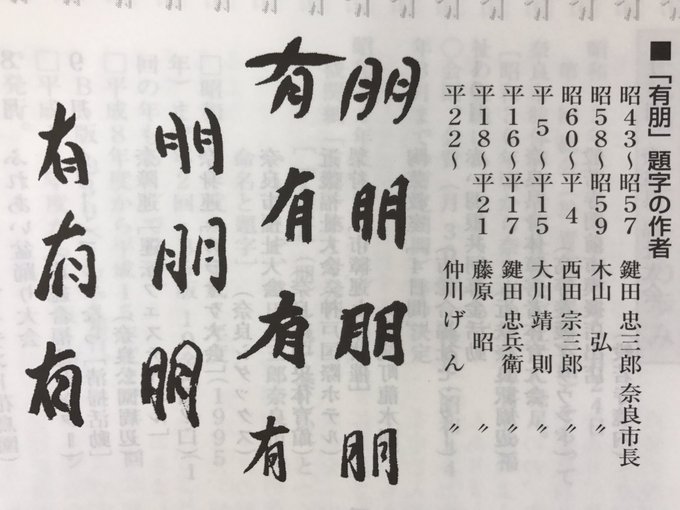 ■「有朋」題字の作者
昭43〜昭57 鍵田 忠三郎 奈良市長
昭58〜昭59 木山 弘 〃
昭60〜平 4 西田 宗三郎 〃
平 5〜平15 大川 靖則 〃
平16〜平17 鍵田 忠兵衛 〃
平18〜平21 藤原 昭 〃
平22〜 仲川 げん 〃
有朋
有朋
有朋
有朋
有朋
有朋
有朋